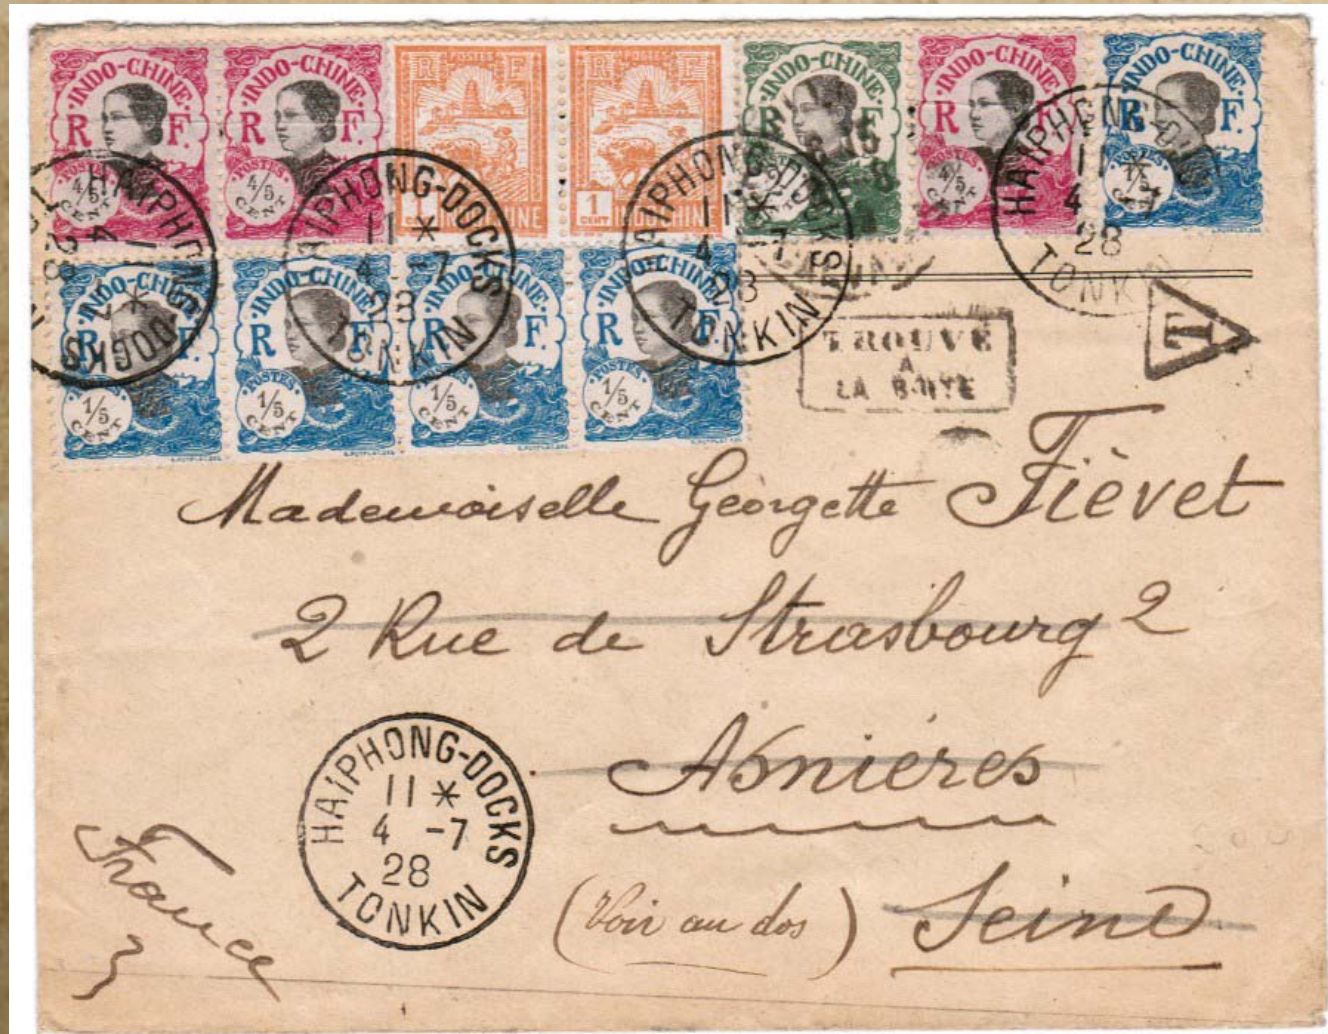 INDO-CHINE R F. POSTES 4/5 CENT
INDO-CHINE R F. POSTES 4/5 CENT
POSTES R F 1 CENT INDOCHINE
POSTES R F 1 CENT INDOCHINE
INDO-CHINE R F. POSTES
INDO-CHINE R F. POSTES 4/5 CENT
INDO-CHINE R F. POSTES 1/5 CENT
INDO-CHINE R F. POSTES 1/5 CENT
INDO-CHINE R F. POSTES 1/5 CENT
INDO-CHINE R F. POSTES 1/5 CENT
INDO-CHINE R F. POSTES 1/5 CENT
HAÏPHONG-DOCKS 11 * 4 -7 28 TONKIN
HAÏPHONG-DOCKS 11 * 4 -7 28 TONKIN
HAÏPHONG-DOCKS 11 * 4 -7 28 TONKIN
HAÏPHONG-DOCKS 11 * 4 -7 28 TONKIN
TROUVÉ
A
LA BOITE
T
Mademoiselle Géorgette Fièvet
2 Rue de Strasbourg 2
Asnières
HAÏPHONG-DOCKS
11 *
4 -7
28
TONKIN
(Voir au dos) Seine
France